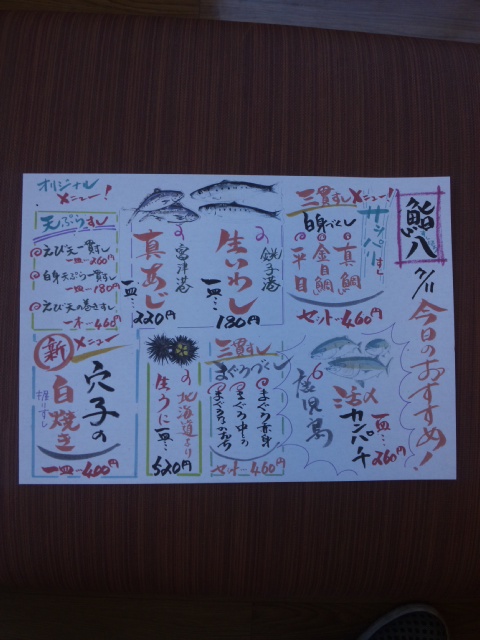 鮨八
7/11
今日のおすすめ!
三貫すしメニュー!
サッパリすし
白身づくし
真鯛
金目鯛
平目
セット…460円
鹿児島
活〆カンパチ
一皿…260円
銚子港
生いわし
一皿…180円
富津港
真あじ
一皿…220円
三貫すし
まぐろづくし
まぐろ赤身
まぐろ中おち
セット…460円
北海道より
生うに一皿…
520円
オリジナルメニュー!
天ぷらすし
えび天一貫すし
一皿…260円
白身天ぷら一貫すし
一皿…180円
えび天の巻きすし
一本…460円
新メニュー
穴子の白焼き
握りすし
一皿…400円